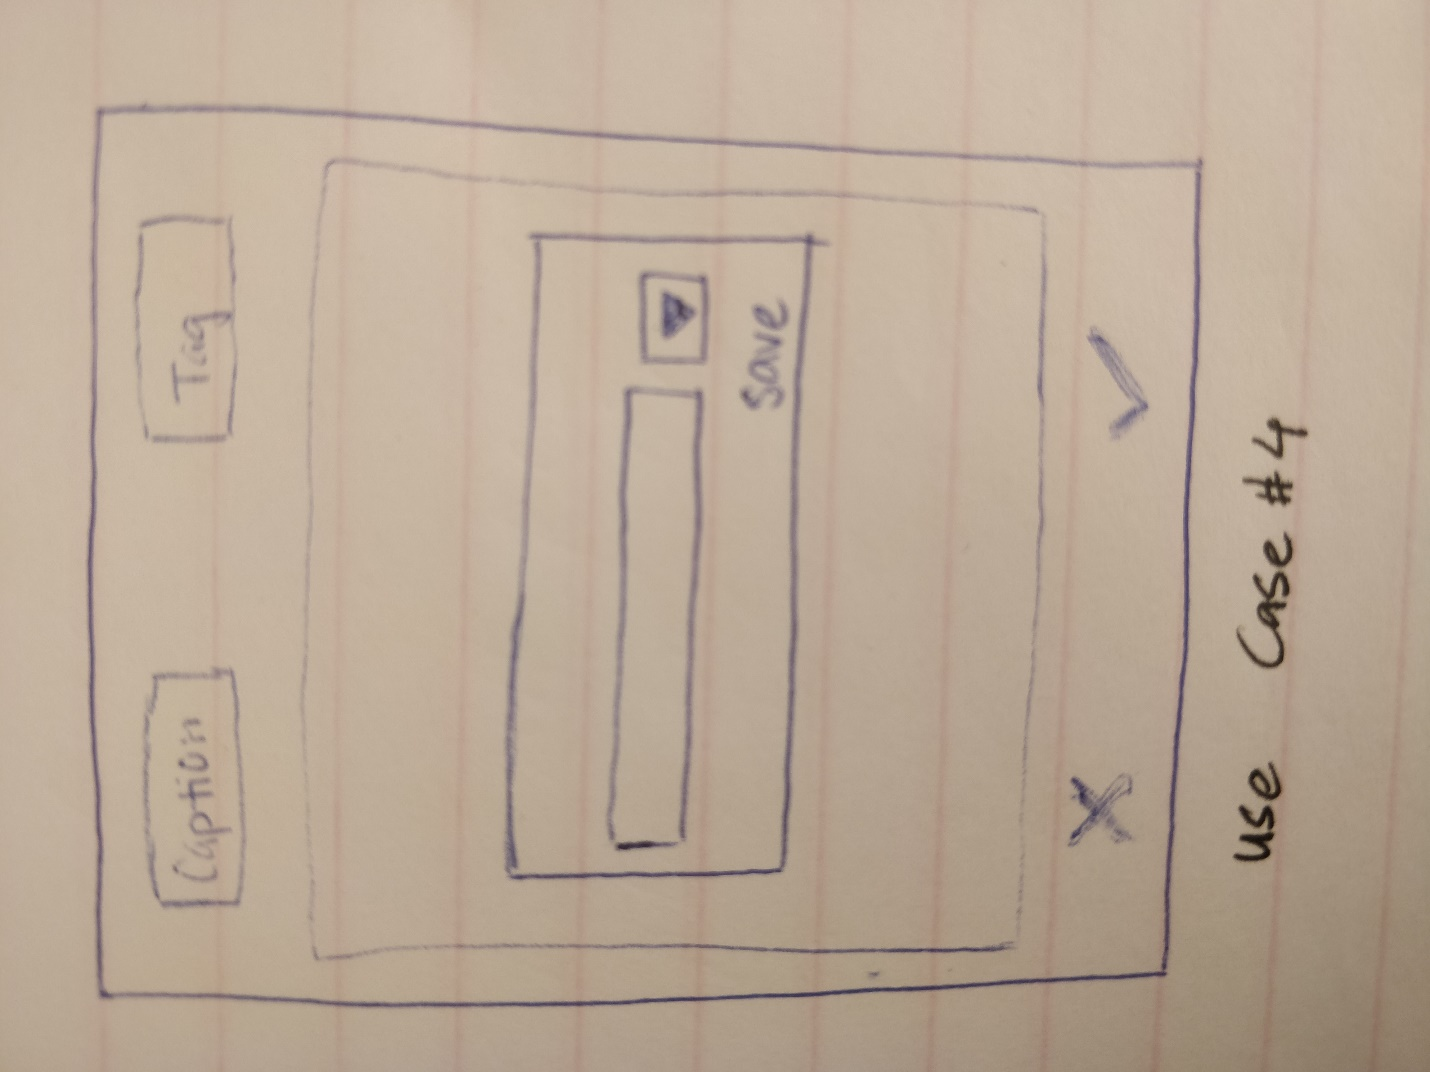 Caption Tag
save
use Case #4